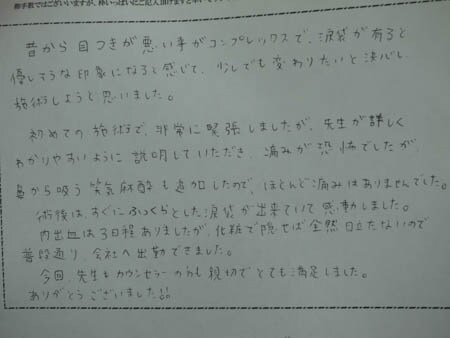 御手数ではございますが、枠いっぱいにご記入頂けますと幸いで
昔から目つきが悪い事がコンプレックスで、涙袋が有ると
優しそうな印象になると感じて、少しでも変わりたいと決心し
施術しようと思いました。
初めての施術で、非常に緊張しましたが、先生が詳しく
わかりやすいように説明していただき、痛みが恐怖でしたが、
鼻から吸う笑気麻酔も追加したので、ほとんど痛みはありませんでした。
術後は、すぐにふっくらとした涙袋が出来ていて感動しました。
内出血は3日程ありましたが、化粧で隠せば全然目立たないので
普段通り、会社へ出勤できました。
今回、先生もカウンセラーの方も親切でとても満足しました。
ありがとうございました!!